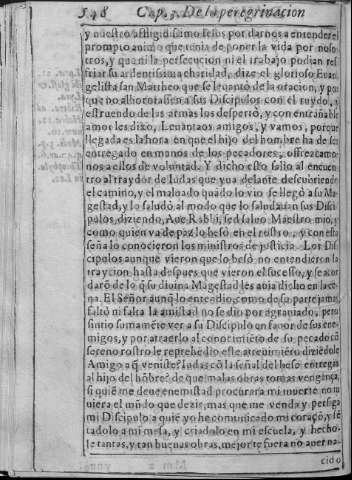 548 Cap. 3. De la peregrinacion
y nuestro astigidissimo Iesus por darnos a entender el
prompto animo que tenia de poner la vida por noso-
tros, y que ni la persecucion ni el trabajo podian res
friar su ardentissima charidad, dize el glorioso Euan
gelista san Mattheo que se leuantó de la oracion, y por
que no alborotassen a sus Discipulos con el ruydo, y
estruendo de las armas los despertó, y con entrañable
amor les dixo, Leuantaos amigos, y vamos, porque
llegada es la hora en que el hijo del hombre ha de ser
entregado en manos de los pecadores, offrezcamo-
nos a ellos de voluntad. Y dicho esto salio al encuen
tro al traydor de Iudas que yua delante descubriendo
el camino, y el maluado quãdo lo vio se llegó a su Ma
gestad, y lo saludó al modo que lo saludauan sus Disci
pulos, diziendo, Aue Rabbi, sed saluo Maestro mio, y
como quien va de paz lo besó en el rostro, y con esta
seña lo conocieron los ministros de justicia. Los Dis
cipulos aunque vieron que lo besó no entendieron la
traycion hasta despues que vieron el sucesso, y se acor
darõ de lo q̃ su diuina Magestad les auia dicho en la ce-
na. El Señor aunq̃ lo entẽdio, como de su parte jamas
faltó ni falta la amistad no se dio por agrauiado, pero
sintio sumamẽte ver a su Discipulo en fauor de sus ene-
migos, y por atraerlo al conocimiẽto de su pecado cõ
sereno rostro le reprehẽdio este atreuimiẽto diziẽdole
Amigo a q̃ veniste? Iudas cõ la señal del beso entregas
al hijo del hõbre? de que malas obras tomas vengãça,
si quiẽ me deue enemistad procurara mi muerte no tu
uiera el mũdo que dezir, mas que me venda y persiga
mi Discipulo a quiẽ yo he comunicado mi coraçõ, y lẽ
tadolo a mi mesa, y criadolo en mi escuela, y hecho-
le tantas, y tan buenas obras, mejor te fuera no auer na-
cido